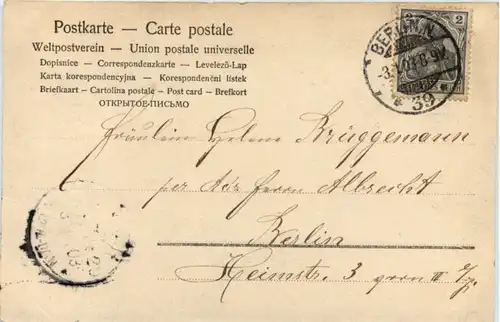 Postkarte — Carte postale
Weltpostverein — Union postale universelle
Dopisnice — Correspondenzkarte — Levelező-Lap
Karta korespondencyjna — Korespondenčni listek
Briefkaart — Cartolina postale — Post card — Brefkort
ОТКРЫТОЕ ПИСЬМО
2 2
BERLIN, N.
39
Fräulein Helene Brüggemann
per Adr Herrn Albrecht
Berlin
Heimstr. 3